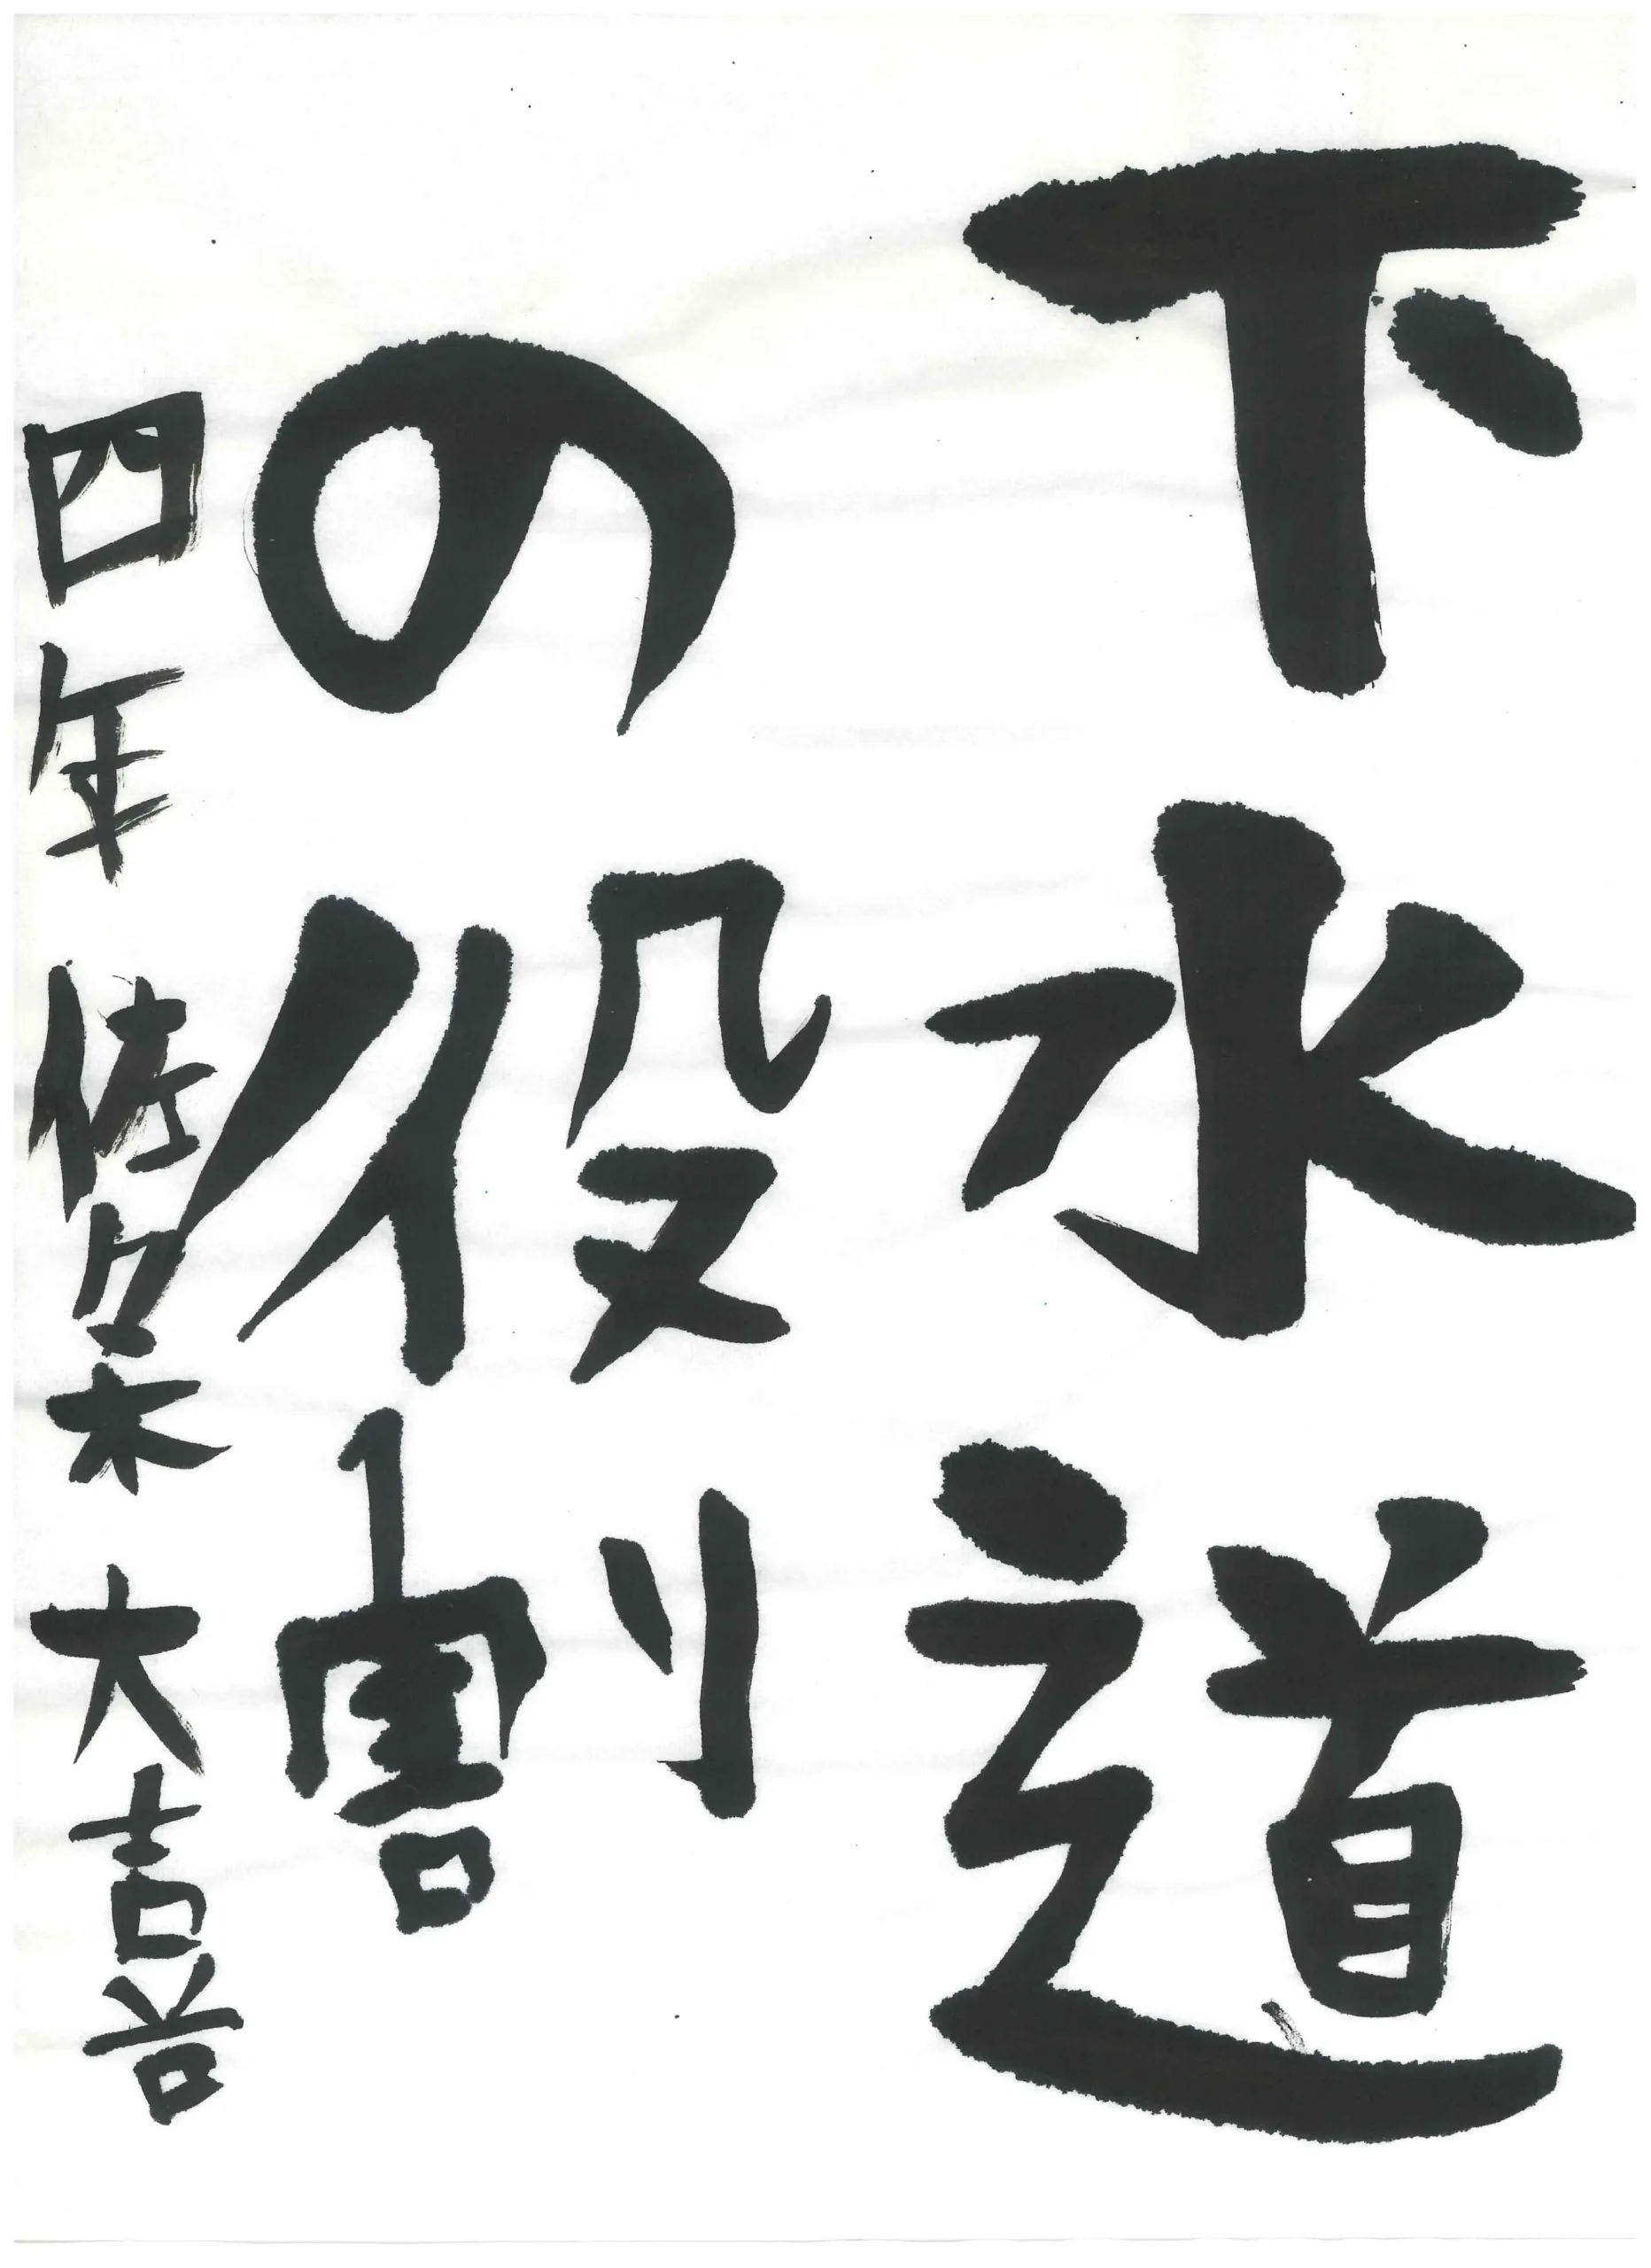 下水道
の役割
四年 佐々木 大喜